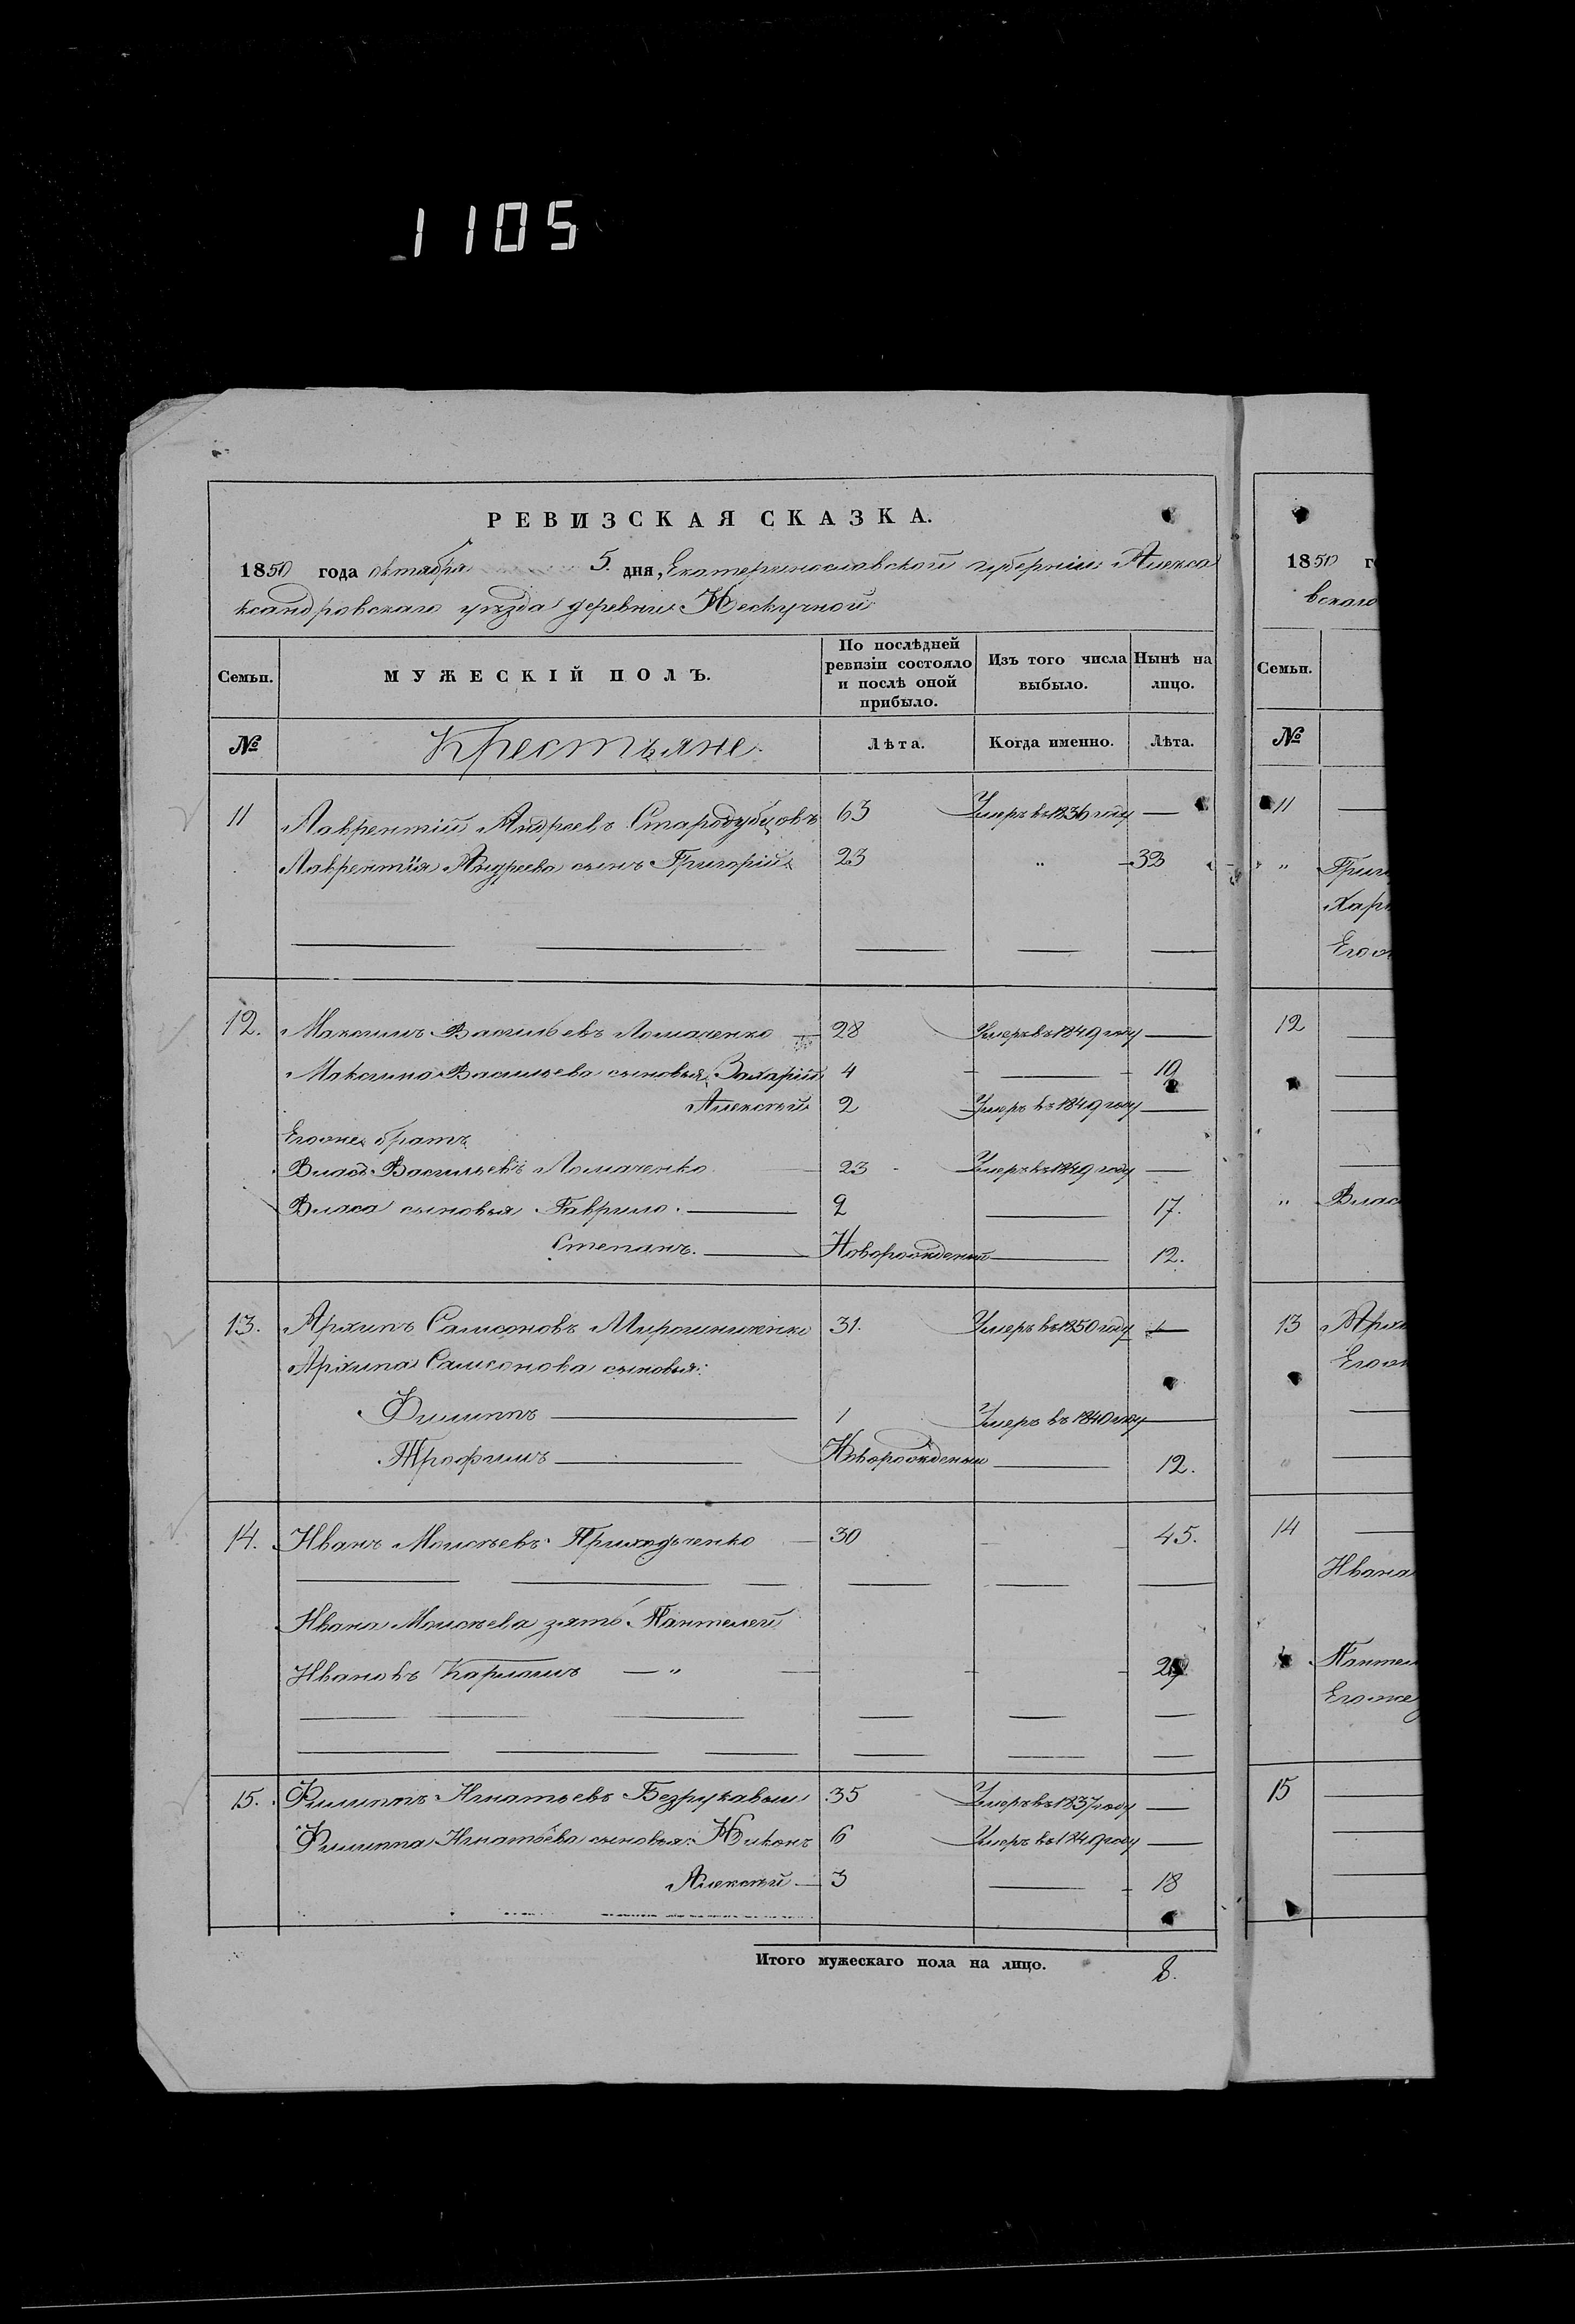 1105
РЕВИЗСКАЯ СКАЗКА.
1850 года октября 5. дня, Екатеринославской губернiи Алекса
ксандровскаго уѣзда деревни Нескучной
Семьи. МУЖЕСКIЙ ПОЛЪ. По послѣдней ревизiи состояло и послѣ оной прибыло. Изъ того числа выбыло. Нынѣ на лицо.
№ Крестьяне. Лѣта. Когда именно. Лѣта.
11 Лаврентiй Андреевъ Стародубцовъ 63 Умеръ въ 1836 году —
Лаврентiя Андреева сынъ Григорiй 23 „ 
12. Максимъ Васильевъ Ломаченко 28 Умеръ въ 1849 году —
Максима Васильева сыновья, Захарiй 4 — 19
Алексѣй 2 Умеръ въ 1849 году —
Егоже братъ
Власъ Васильевъ Ломаченко 23 Умеръ въ 1849 году —
Власа сыновья Гаврило. — 2 — 17.
Степанъ. — Новорожденый — 12.
13. Архипъ Самсоновъ Мирошниченко 31. Умеръ въ 1850 году —
Архипа Самсонова сыновья:
Филиппъ — 1 Умеръ въ 1840 году —
Трофимъ — Новорожденый — 12.
14. Иванъ Моисѣевъ Приходченко — 30 45.
Ивана Моисѣева зять Пантелей
Ивановъ — „ —
15. Филиппъ Игнатьевъ Безрукавый 35 Умеръ въ 1837 году —
Филиппа Игнатьева сыновья: Никонъ 6 Умеръ въ 1849 году —
Алексѣй — 3 — 18
Итого мужескаго пола на лицо. 8.
1850 г
вскаго
Семьи.
№
11
„
12
„ Влас
13
14
Ивана
Егоже
15